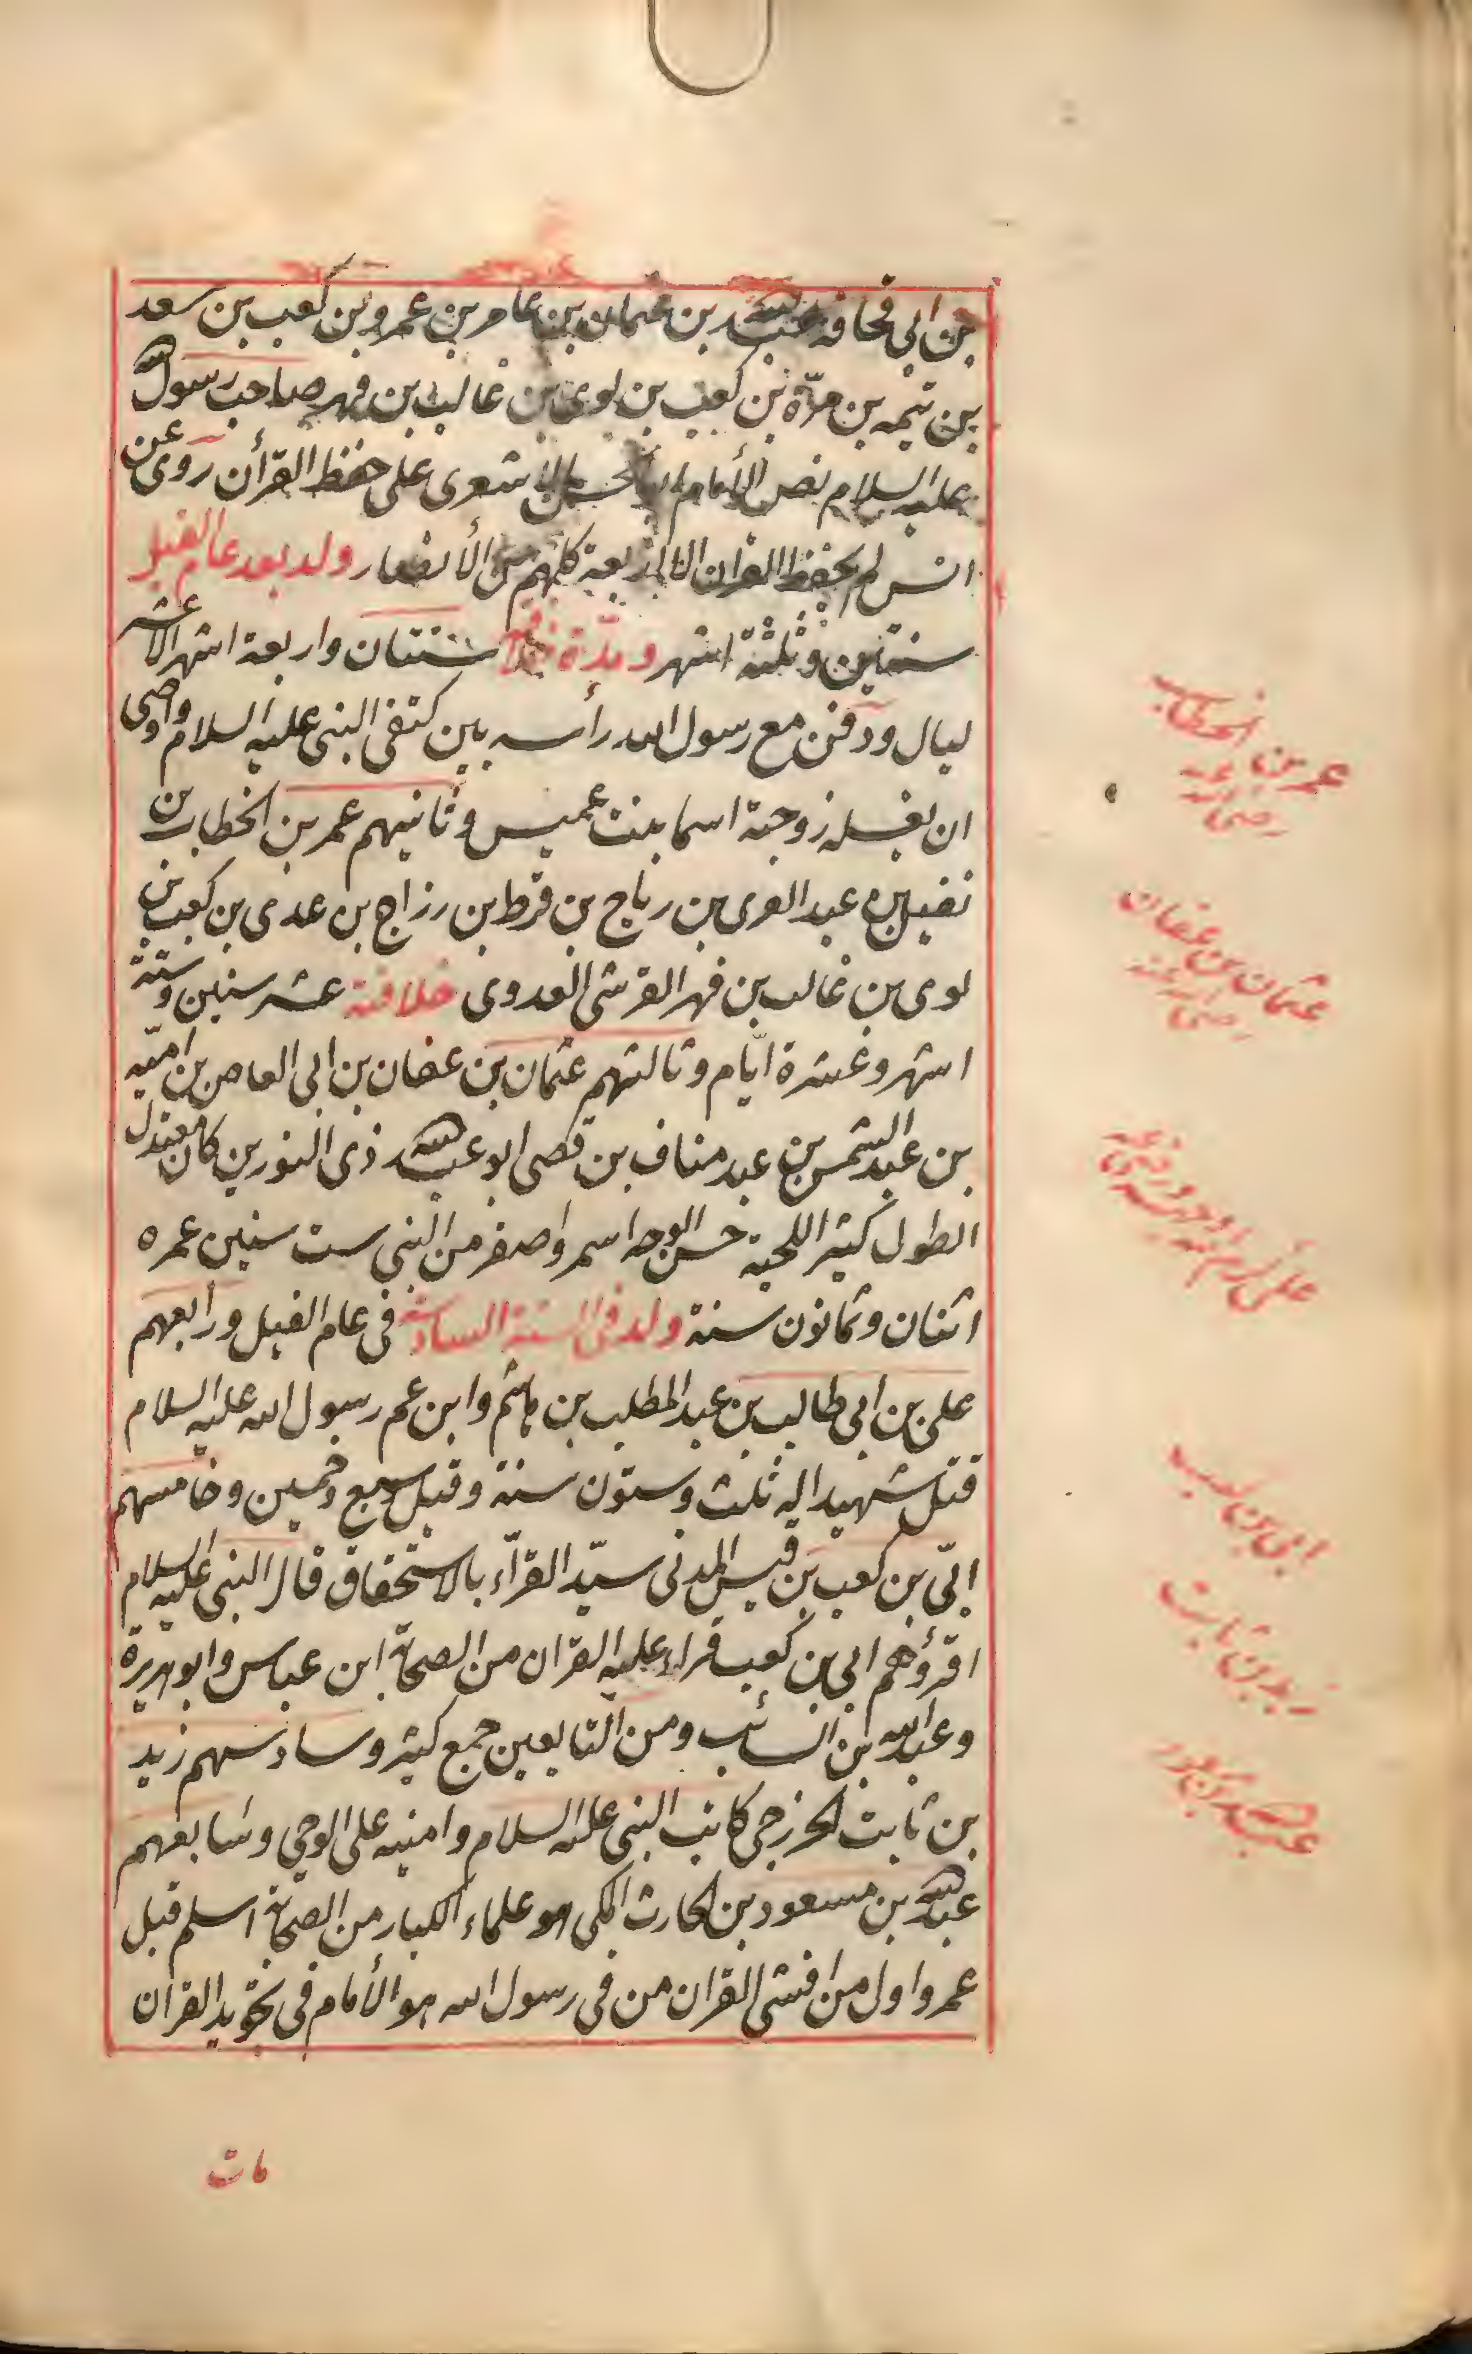 بن ابى قحافه عبد الله بن عثمان بن عامر بن عمرو بن كعب بن سعد
بن تيمه بن مرّة بن كعب بن لوى بن غالب بن فهر صاحب رسول الله
عليه السلام نص الأمام ابو الحسن الاشعرى على حفظ القرأن روى عن
انس لم يحفظ القران الا اربعة كلهم من الأنصار ولد بعد عام الفيل
سنتين وثلثة اشهر ومدّة خلافته سنتان واربعة اشهر الا عشر
ليال ودفن مع رسول الله رأسه بين كتفى النبى عليه السلام واوصى
ان يغسله زوجته اسما بنت عميس وثانيهم عمر بن الخطاب بن
نفيل بن عبد العزى بن رباح بن قرط بن رزاح بن عدى بن كعب بن
لوى بن غالب بن فهر القرشى العدوى خلافته عشر سنين وستة
اشهر وعشرة ايّام وثالثهم عثمان بن عفان بن ابى العاص بن اميّه
بن عبد الشمس بن عبد مناف بن قصى ابو عبد الله ذى النورين كان معتدل
الطول كثير اللحية حسن الوجه اسمر واصغر من النبى ست سنين عمره
اثنان وثمانون سنة ولد فى السنة السادسة فى عام الفيل ورابعهم
على بن ابى طالب بن عبد المطلب بن هاشم وابن عم رسول الله عليه السلام
قتل شهيدا له ثلث وستون سنة وقيل سبع وخمسين وخامسهم
ابّى بن كعب بن قيس المدنى سيّد القرآء بالاستحقاق قال النبى عليه السلام
اقرؤكم ابى بن كعب قراء عليه القران من الصحابة ابن عباس وابو هريرة
وعبد الله بن السائب ومن التابعين جمع كثير وسادسهم زيد
بن ثابت الخزرجى كاتب النبى عليه السلام وامنيه على الوحى وسابعهم
عبد الله بن مسعود بن الحارث المكى هو علماء الكبار من الصحابة اسلم قبل
عمر واول من افشى القران من فى رسول الله هو الأمام فى تجويد القران
مات
عمر بن الخطاب
رضى الله عنه
عثمان بن عفان
رضى الله عنه
على كرم الله وجهه ورضى عنه
ابى بن كعب
زيد بن ثابت
عبد الله بن مسعود